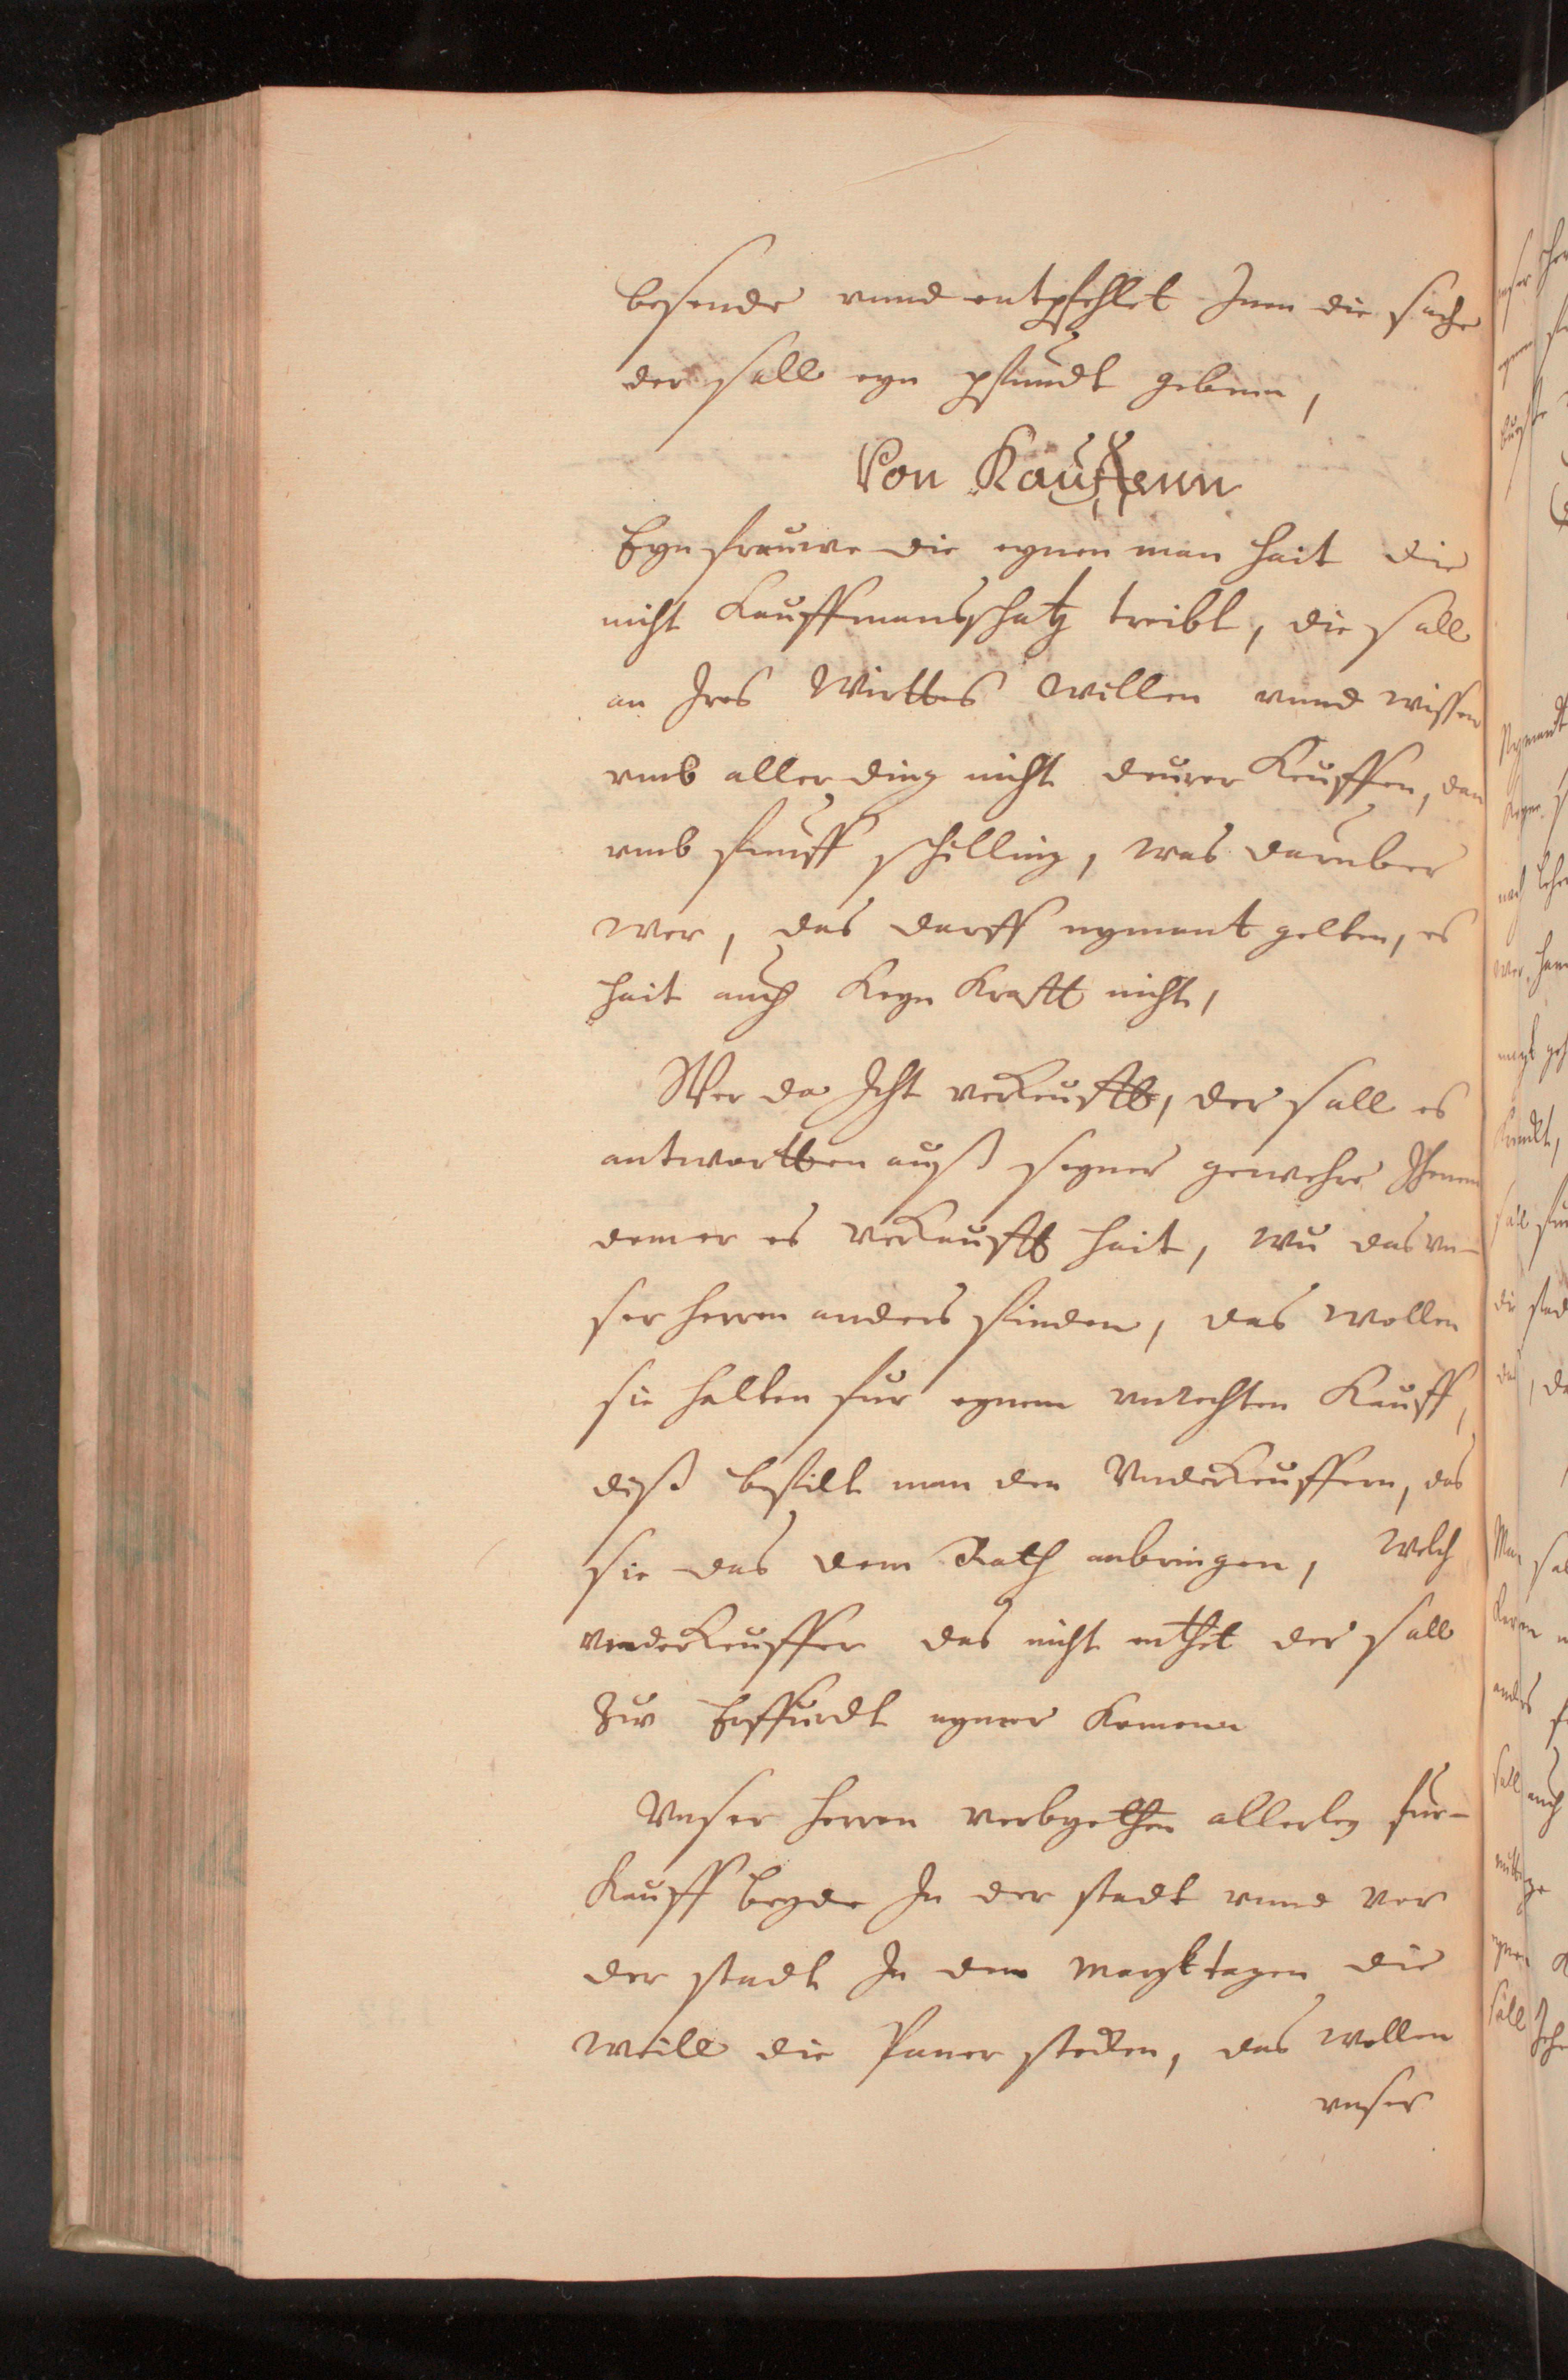 besende vnnd entpfehlet Jnen die sache
der sall eyn pfundt gebenn,
Von Kauffenn
Eyn frauwe die eynen man hait die
nicht Kauffmanschatz treibt, die sall
an Jres Wirttes willen vnnd wissen
vmb aller ding nicht deurer Keuffen, dan
vmb funff schilling, was daruber
wer, das darff nymant gelten, es
hait auch Keyn Krafft nicht,
Wer da Jcht verkeufft, der sall es
antwortten auß seyner gewehre Jhenem
dem er es verkaufft hait, wu das vn-
ser herren anders finden, das wollen
sie halten fur eynem vnrechten Kauff,
diß befilt man den Vnderkeuffern, das
sie das dem Rath anbringen, Welch
vnderkeuffer das nicht enthet der sall
Zw Erffurdt nymer Komenn
Vnser herren verbyethen allerley fur-
Kauff beyde Jn der stadt vnnd vor
der stadt Jn den margktagen die
weill die Paner stecken, das wollen
vnser